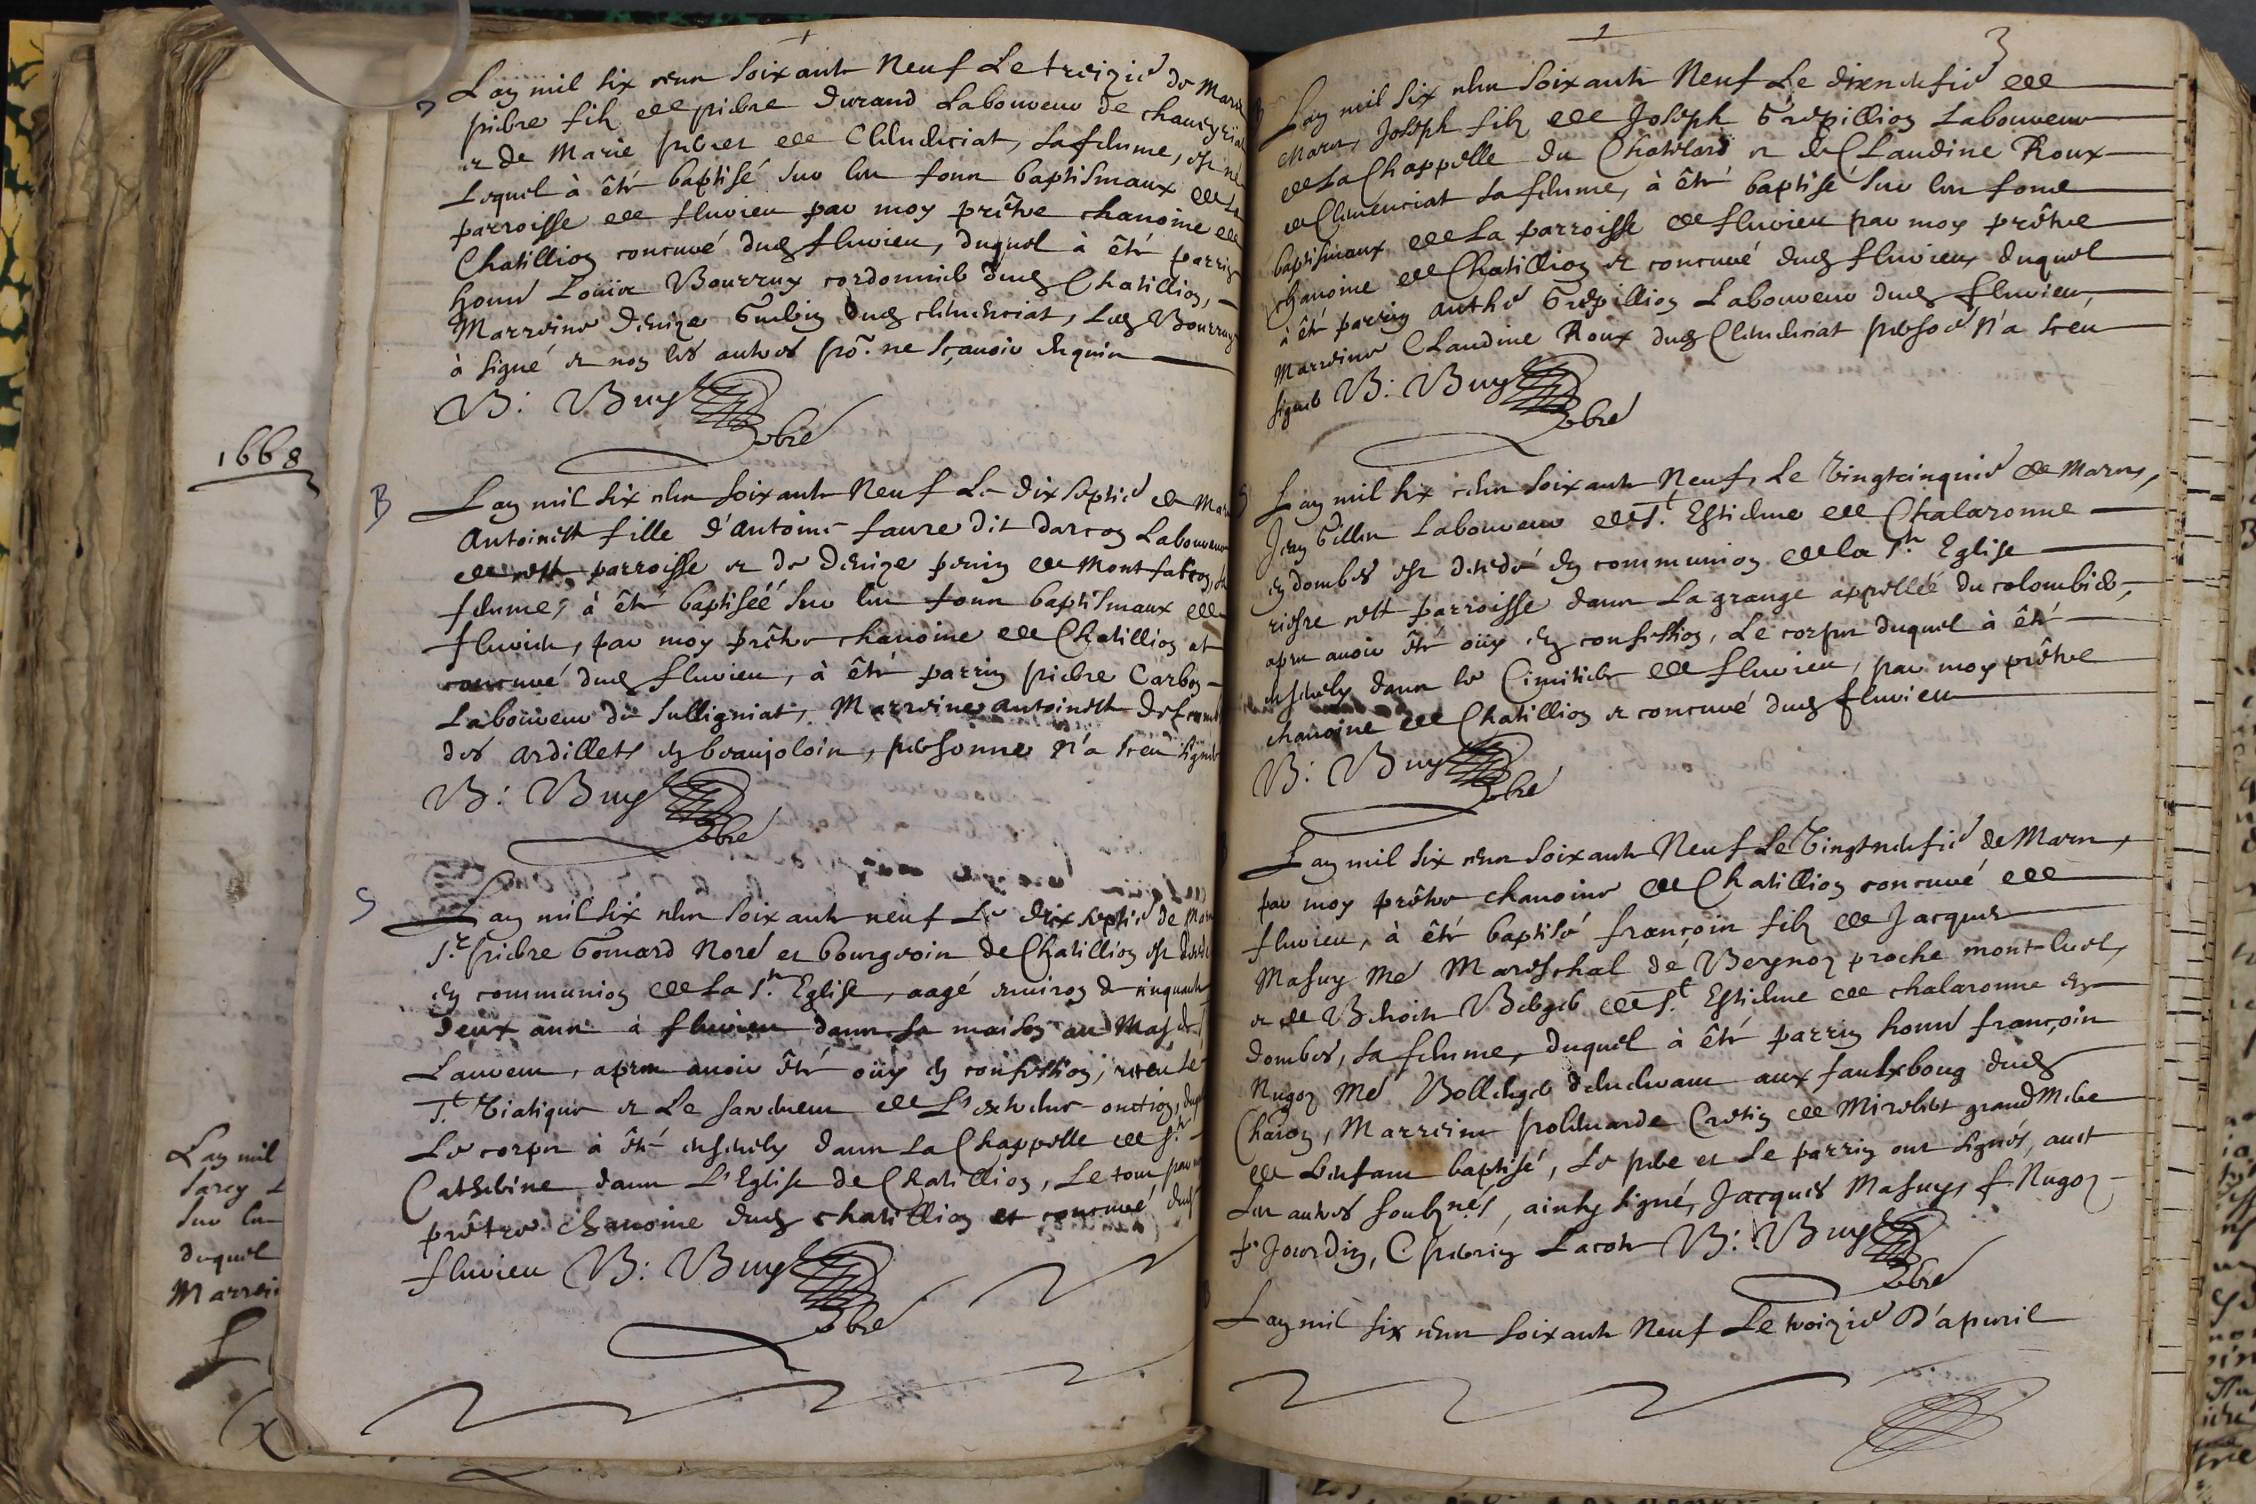 L'an mil six cens soixante Neuf Le treizie de Mars
pierre filz de pierre durand Laboureur de chaneyria
et de Marie perret de Clemenciat, sa femme, est né
Lequel à êté baptisé sur les fons baptismaux de la
parroisse de fluvieu par moy prêtre chanoine de
Chatillion et curé dud fluvieu, duquel à êté parrin
honne Louis Bourruy cordonnier dud Chatillion,
Marreine denize Guebin dud clemenciat, Led Bourruy
à signé et non les autres po.r ne sçavoir enquis
B: Buy curé
1668
B
L'an mil six cens soixante Neuf Le dix septie de Mars
Antoinette fille d'antoine faure dit darcon Laboureur
de cette parroisse et de denize penin de Montfalcon, sa
femme, à êté baptiséé sur les fons baptismaux de
fluvieu, par moy prêtre chanoine de Chatillion et
curé dud fluvieu, à êté parrin pierre Carbon
Laboureur de sulligniat, Marreine antoinette
des ardillets en beaujolois, personne n'a sceu signer
B: Buy curé
S
L'an mil six cens soixante neuf Le dix septie de Mars
S.r pierre Gomard Nore et bourgeois de Chatillion est decedé
en communion de La s.te Eglise, aagé environ de cinquante
deux ans à fluvieu dans sa maison au Mas de
Lauveur, apres avoir êté oüy en confession, receu Le
S.t Viatique et Le sacrement de L'extreme-onction, duquel
Le corps à êté ensevely dans La Chappelle de s.te
Catherine dans L'Eglise de Chatillion, Le tout par moy
prêtre chanoine dud chatillion et curé dud
fluvieu B: Buy curé
L'an mil
duquel
Marrei
3
L'an mil six cens soixante Neuf Le dixneufie de
Mars, Joseph filz de Joseph Grepillion Laboureur
de La Chappelle du Châtelard et de Claudine Roux
de Clemenciat sa femme, à êté baptisé sur les fons
baptismaux de La parroisse de fluvieu par moy prêtre
chanoine de Chatillion et curé dud fluvieu, duquel
à êté parrin anthe Grepillion Laboureur dud fluvieu,
Marreine Claudine Roux dud Clemenciat persoe n'a sceu
signer B: Buy curé
S
L'an mil six cens soixante Neuf, Le Vingtcinquie de Mars,
Jean Gillet Laboureur de S.t Estienne de Chalaronne
en dombes est decedé en communion de la S.te Eglise
riesre cette parroisse dans La grange appellée du colombier,
apres avoir êté oüy en confession, Le corps duquel à êté
ensevely dans le Cimitiere de fluvieu, par moy prêtre
chanoine de Chatillion et curé dud fluvieu
B: Buy curé
L'an mil six cens soixante Neuf Le Vingtneufie de Mars,
par moy prêtre chanoine de Chatillion et curé de
fluvieu, à êté baptisé françois filz de Jacques
Masuy Me Mareschal de Beynoz proche mont-luel,
et de Benoite Berger de S.t Estienne de chalaronne en
dombes, sa femme, duquel à êté parrin honne françois
Nugoz Me Bollenger demeurant aux fauxboug dud
Chaon, Marreine poldmarde Cretin de Miribel grand Mere
de L'enfant baptisé, Le pere et Le parrin ont signés, avec
Les autres soubznés, ainsy signé, Jacques Masuy, f Nugoz
p. Jourdin, C perrin Lacote B: Buy curé
L'an mil six cens soixante Neuf Le troizie D'apvril